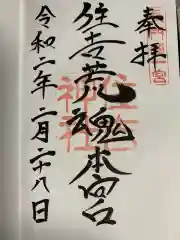 奉拝
住吉荒魂本宮
住吉
神社
令和二年二月二十八日